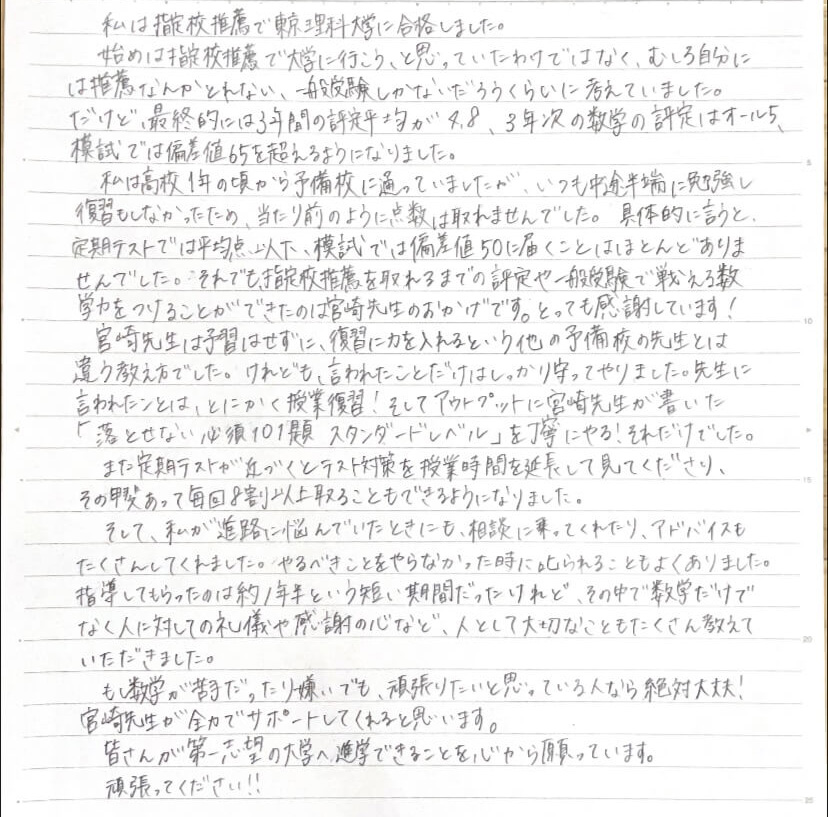 私は指定校推薦で東京理科大学に合格しました。
始めは指定校推薦で大学に行こう、と思っていたわけではなく、むしろ自分に
は推薦なんかとれない、一般受験しかないだろうくらいに考えていました。
だけど、最終的には3年間の評定平均が4.8、3年次の数学の評定はオール5、
模試では偏差値65を超えるようになりました。
私は高校1年の頃から予備校に通っていましたが、いつも中途半端に勉強し
復習もしなかったため、当たり前のように点数は取れませんでした。具体的に言うと、
定期テストでは平均点以下、模試では偏差値50に届くことはほとんどありま
せんでした。それでも指定校推薦を取れるまでの評定や一般受験で戦える数
学力をつけることができたのは宮崎先生のおかげです。とっても感謝しています!
宮崎先生は予習はせずに、復習に力を入れるという他の予備校の先生とは
違う教え方でした。けれども、言われたことだけはしっかり守ってやりました。先生に
言われたことは、とにかく授業復習!そしてアウトプットに宮崎先生が書いた
「落とせない必須101題 スタンダードレベル」を丁寧にやる!それだけでした。
また定期テストが近づくとテスト対策を授業時間を延長して見てくださり、
その甲斐あって毎回8割以上取ることもできるようになりました。
そして、私が進路に悩んでいたときにも、相談に乗ってくれたり、アドバイスも
たくさんしてくれました。やるべきことをやらなかった時に叱られることもよくありました。
指導してもらったのは約1年半という短い期間だったけれど、その中で数学だけで
なく人に対しての礼儀や感謝の心など、人として大切なこともたくさん教えて
いただきました。
もし数学が苦手だったり嫌いでも、頑張りたいと思っている人なら絶対大丈夫!
宮崎先生が全力でサポートしてくれると思います。
皆さんが第一志望の大学へ進学できることを心から願っています。
頑張ってください!!
5
10
15
20
25